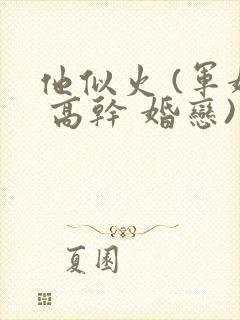 他似火(軍
高幹 婚戀)
夏園